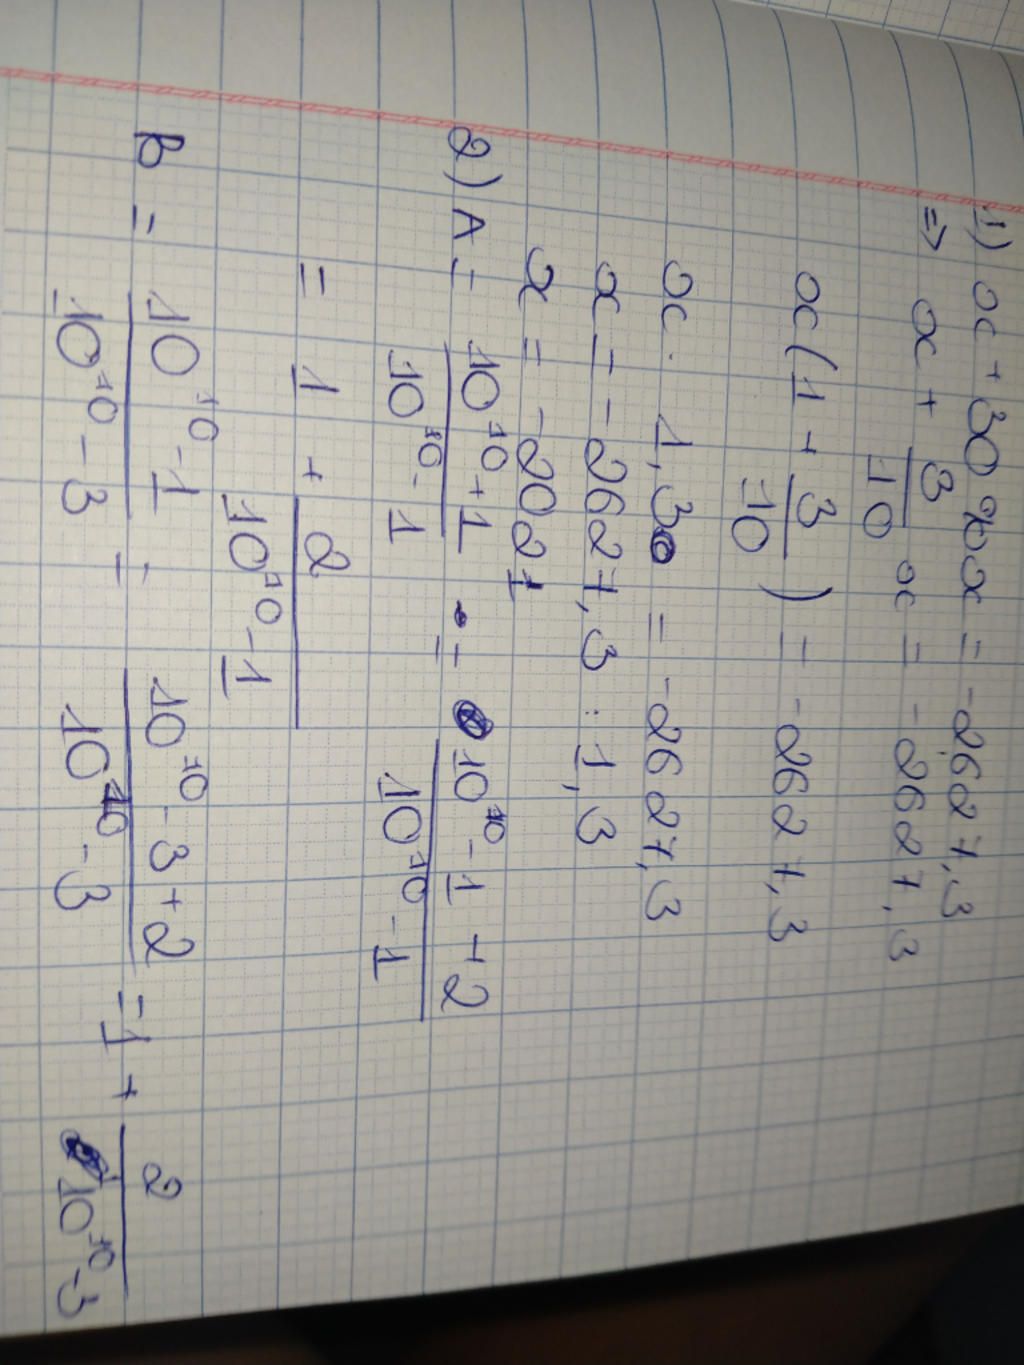 1) x + 30%x = -2627,3
=> x + 3/10 x = -2627,3
x(1 + 3/10) = -2627,3
x. 1,3 = -2627,3
x = -2627,3 : 1,3
x = -2021
2) A = (10^10 + 1)/(10^10 - 1) = (10^10 - 1 + 2)/(10^10 - 1)
= 1 + 2/(10^10 - 1)
B = (10^10 - 1)/(10^10 - 3) = (10^10 - 3 + 2)/(10^10 - 3) = 1 + 2/(10^10 - 3)